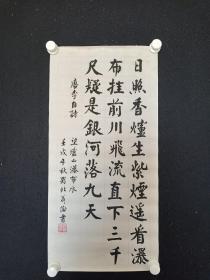 日照香爐生紫煙遥看瀑
布挂前川飛流直下三千
尺疑是銀河落九天
唐李白詩
望廬山瀑布水
壬戌年秋